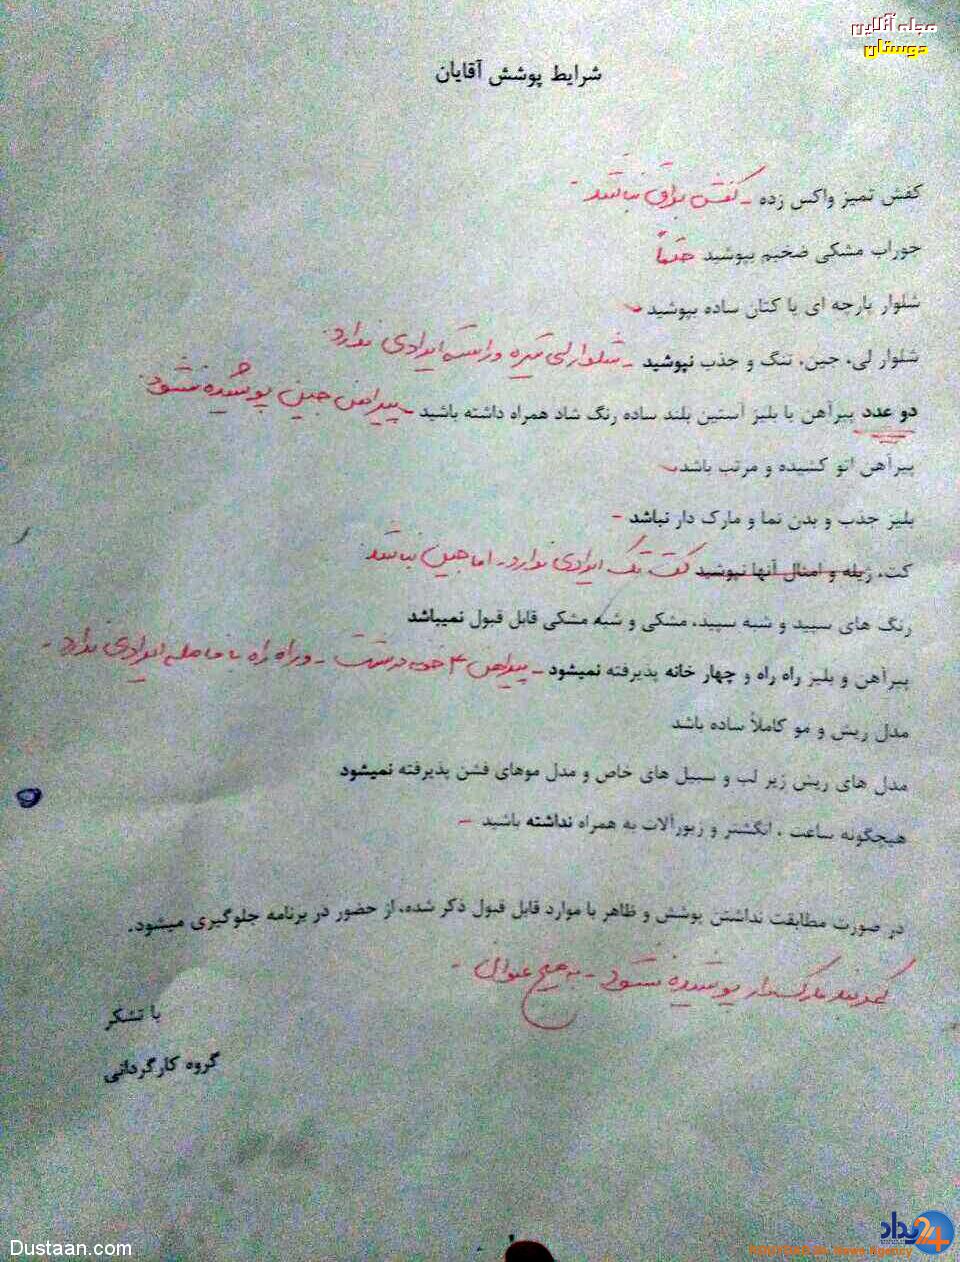 مجله آنلاین
دوستان
شرایط پوشش آقایان
کفش تمیز واکس زده - کفش براق نباشد -
جوراب مشکی ضخیم بپوشید حتماً
شلوار پارچه ای یا کتان ساده بپوشید
شلوار لی، جین، تنگ و جذب نپوشید - شلوار لی تیره و راسته ایرادی ندارد.
دو عدد پیرآهن یا بلیز آستین بلند ساده رنگ شاد همراه داشته باشید - پیراهن جین پوشیده نشود.
پیرآهن اتو کشیده و مرتب باشد
بلیز جذب و بدن نما و مارک دار نباشد -
کت، ژیله و امثال آنها نپوشید کت تک ایرادی ندارد. اما جین نباشد.
رنگ های سپید و شبه سپید، مشکی و شبه مشکی قابل قبول نمیباشد
پیرآهن و بلیز راه راه و چهار خانه پذیرفته نمیشود - پیراهن ۴ خونه درشت - و راه راه با فاصله ایرادی ندارد -
مدل ریش و مو کاملاً ساده باشد
مدل های ریش زیر لب و سبیل های خاص و مدل موهای فشن پذیرفته نمیشود
هیچگونه ساعت ، انگشتر و زیورآلات به همراه نداشته باشید -
در صورت مطابقت نداشتن پوشش و ظاهر با موارد قابل قبول ذکر شده، از حضور در برنامه جلوگیری میشود.
کمربند مارکدار پوشیده نشود - به هیچ عنوان -
با تشکر
گروه کارگردانی
Dustaan.com
رویداد24
News Agency